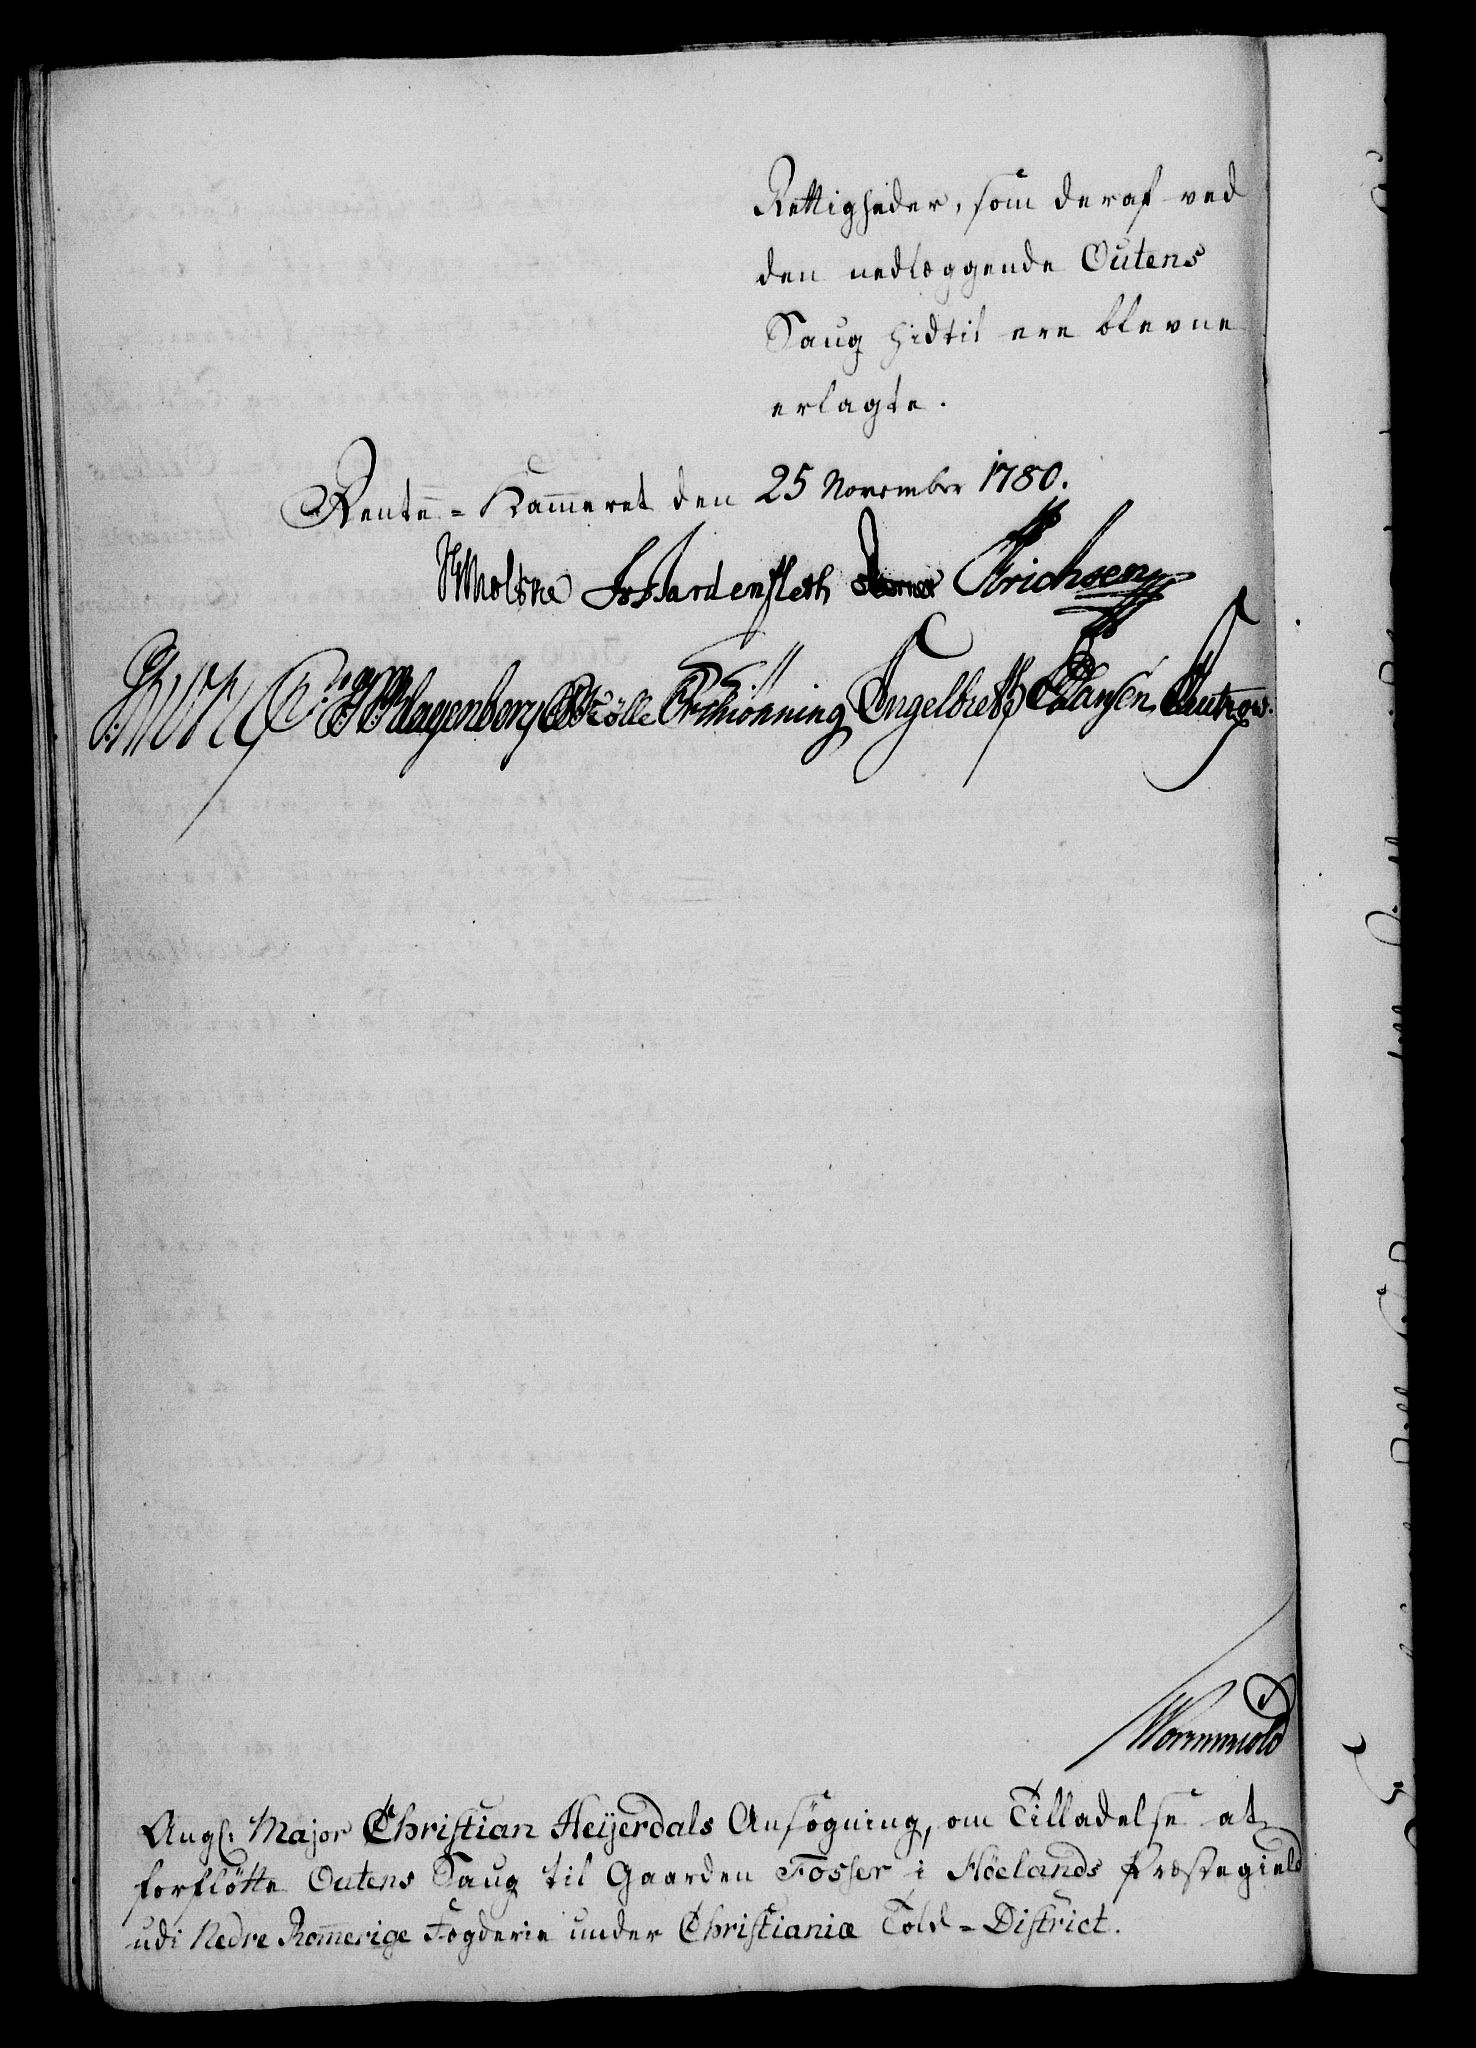 Rettigheder, som deraf ved
den nedlæggende Outens
Saug hidtil ere blevne
erlagte.
Rente-Kammeret den 25 November 1780.
HMoltke JsHardenfleth Erichsen
Klagenberg Kølle PSchiønning Engelbreth Hansen Lützow.
Wormwold
Angl: Major Christian Heijerdals Ansögning, om Tilladelse at
forflötte Outens Saug til Gaarden Fosser i Höelands Præstegield
udi Nedre Romerige Fogderie under Christianiæ Told-District.